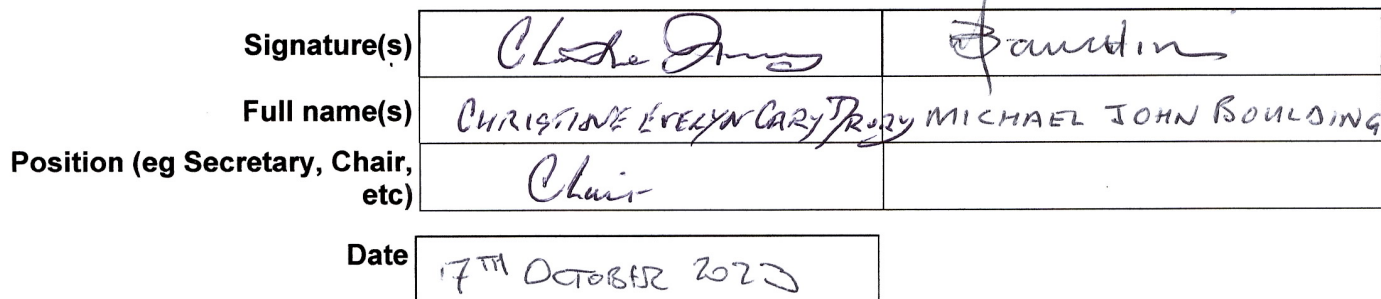 Signature(s)
Full name(s) CHRISTINE EVELYN CARY DRURY MICHAEL JOHN BOULDING
Position (eg Secretary, Chair,
etc) Chair
Date 17TH OCTOBER 2023